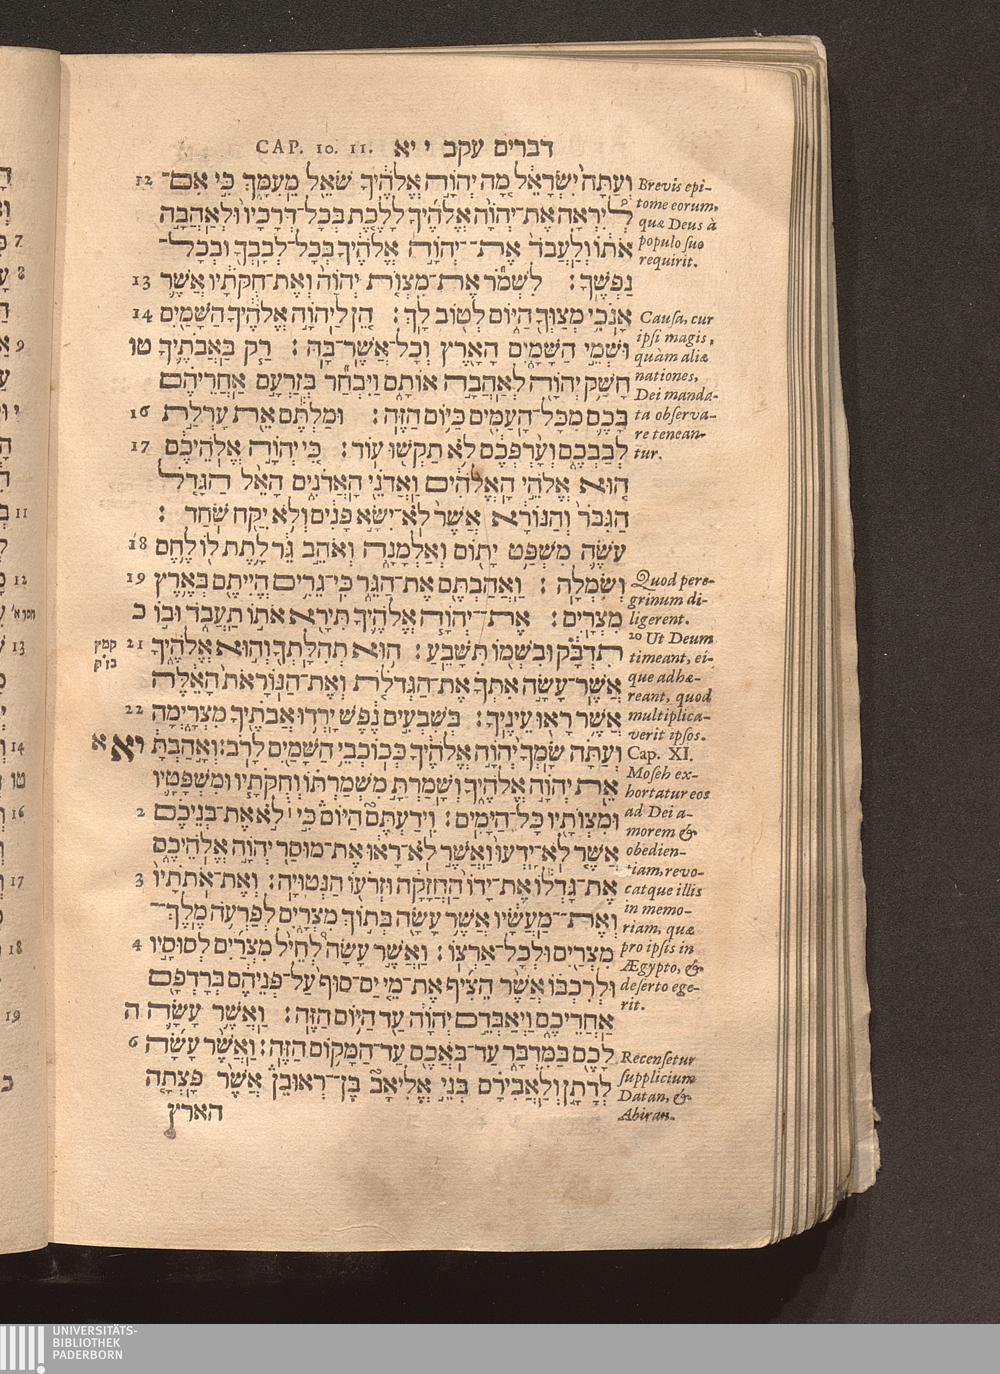 דברים עקב י יא CAP. 10. 11.
וְעַתָּה֙ יִשְׂרָאֵ֔ל מָ֚ה יְהוָ֣ה אֱלֹהֶ֔יךָ שֹׁאֵ֖ל מֵֽעִמָּ֑ךְ כִּ֣י אִם־ 12
לְ֠יִרְאָה אֶת־יְהוָ֨ה אֱלֹהֶ֜יךָ לָלֶ֤כֶת בְּכָל־דְּרָכָיו֙ וּלְאַהֲבָ֣ה
אֹת֔וֹ וְלַֽעֲבֹד֙ אֶת־יְהוָ֣ה אֱלֹהֶ֔יךָ בְּכָל־לְבָבְךָ֖ וּבְכָל־
נַפְשֶֽׁךָ׃ לִשְׁמֹ֞ר אֶת־מִצְוֺ֤ת יְהוָה֙ וְאֶת־חֻקֹּתָ֔יו אֲשֶׁ֛ר 13
אָנֹכִ֥י מְצַוְּךָ֖ הַיּ֑וֹם לְט֖וֹב לָֽךְ׃ הֵ֚ן לַיהוָ֣ה אֱלֹהֶ֔יךָ הַשָּׁמַ֖יִם 14
וּשְׁמֵ֣י הַשָּׁמָ֑יִם הָאָ֖רֶץ וְכָל־אֲשֶׁר־בָּֽהּ׃ רַ֧ק בַּאֲבֹתֶ֛יךָ טו
חָשַׁ֥ק יְהוָ֖ה לְאַהֲבָ֣ה אוֹתָ֑ם וַיִּבְחַ֞ר בְּזַרְעָ֣ם אַחֲרֵיהֶ֗ם
בָּכֶ֛ם מִכָּל־הָעַמִּ֖ים כַּיּ֥וֹם הַזֶּֽה׃ וּמַלְתֶּ֕ם אֵ֖ת עָרְלַ֣ת 16
לְבַבְכֶ֑ם וְעָ֨רְפְּכֶ֔ם לֹ֥א תַקְשׁ֖וּ עֽוֹד׃ כִּ֚י יְהוָ֣ה אֱלֹֽהֵיכֶ֔ם 17
ה֚וּא אֱלֹהֵ֣י הָֽאֱלֹהִ֔ים וַאֲדֹנֵ֖י הָאֲדֹנִ֑ים הָאֵ֨ל הַגָּדֹ֤ל
הַגִּבֹּר֙ וְהַנּוֹרָ֔א אֲשֶׁר֙ לֹא־יִשָּׂ֣א פָנִ֔ים וְלֹ֥א יִקַּ֖ח שֹֽׁחַד׃
עֹשֶׂ֛ה מִשְׁפַּ֥ט יָת֖וֹם וְאַלְמָנָ֑ה וְאֹהֵ֣ב גֵּ֔ר לָ֥תֶת ל֖וֹ לֶ֥חֶם 18
וְשִׂמְלָֽה׃ וַאֲהַבְתֶּ֖ם אֶת־הַגֵּ֑ר כִּֽי־גֵרִ֥ים הֱיִיתֶ֖ם בְּאֶ֥רֶץ 19
מִצְרָֽיִם׃ אֶת־יְהוָ֧ה אֱלֹהֶ֛יךָ תִּירָ֖א אֹת֣וֹ תַעֲבֹ֑ד וּב֣וֹ כ
תִדְבָּ֔ק וּבִשְׁמ֖וֹ תִּשָּׁבֵֽעַ׃ ה֥וּא תְהִלָּתְךָ֖ וְה֣וּא אֱלֹהֶ֑יךָ 21
קמץ
בז״ק
אֲשֶׁר־עָשָׂ֣ה אִתְּךָ֗ אֶת־הַגְּדֹלֹ֤ת וְאֶת־הַנּֽוֹרָאֹת֙ הָאֵ֔לֶּה
אֲשֶׁ֥ר רָא֖וּ עֵינֶֽיךָ׃ בְּשִׁבְעִ֣ים נֶ֔פֶשׁ יָרְד֥וּ אֲבֹתֶ֖יךָ מִצְרָ֑יְמָה 22
וְעַתָּ֗ה שָֽׂמְךָ֙ יְהוָ֣ה אֱלֹהֶ֔יךָ כְּכוֹכְבֵ֥י הַשָּׁמַ֖יִם לָרֹֽב׃ וְאָ֣הַבְתָּ֔ יא א
אֵ֖ת יְהוָ֣ה אֱלֹהֶ֑יךָ וְשָׁמַרְתָּ֣ מִשְׁמַרְתּ֗וֹ וְחֻקֹּתָ֧יו וּמִשְׁפָּטָ֛יו
וּמִצְוֺתָ֖יו כָּל־הַיָּמִֽים׃ וִֽידַעְתֶּם֮ הַיּוֹם֒ כִּ֣י ׀ לֹ֣א אֶת־בְּנֵיכֶ֗ם 2
אֲשֶׁ֤ר לֹֽא־יָדְעוּ֙ וַאֲשֶׁ֣ר לֹא־רָא֔וּ אֶת־מוּסַ֖ר יְהוָ֣ה אֱלֹהֵיכֶ֑ם
אֶת־גָּדְל֕וֹ אֶת־יָדוֹ֙ הַחֲזָקָ֔ה וּזְרֹע֖וֹ הַנְּטוּיָֽה׃ וְאֶת־אֹֽתֹתָיו֙ 3
וְאֶֽת־מַעֲשָׂ֔יו אֲשֶׁ֥ר עָשָׂ֖ה בְּת֣וֹךְ מִצְרָ֑יִם לְפַרְעֹ֥ה מֶֽלֶךְ־
מִצְרַ֖יִם וּלְכָל־אַרְצֽוֹ׃ וַאֲשֶׁ֣ר עָשָׂה֩ לְחֵ֨יל מִצְרַ֜יִם לְסוּסָ֣יו 4
וּלְרִכְבּ֗וֹ אֲשֶׁ֨ר הֵצִ֜יף אֶת־מֵ֤י יַם־סוּף֙ עַל־פְּנֵיהֶ֔ם בְּרָדְפָ֖ם
אַחֲרֵיכֶ֑ם וַיְאַבְּדֵ֣ם יְהוָ֔ה עַ֖ד הַיּ֥וֹם הַזֶּֽה׃ וַאֲשֶׁ֥ר עָשָׂ֛ה ה
לָכֶ֖ם בַּמִּדְבָּ֑ר עַד־בֹּאֲכֶ֖ם עַד־הַמָּק֥וֹם הַזֶּֽה׃ וַאֲשֶׁ֨ר עָשָׂ֜ה 6
לְדָתָ֣ן וְלַאֲבִירָ֗ם בְּנֵ֣י אֱלִיאָב֮ בֶּן־רְאוּבֵן֒ אֲשֶׁ֨ר פָּצְתָ֤ה
הארץ
Brevis epi-
tome eorum,
quæ Deus à
populo suo
requirit.
Causa, cur
ipsi magis,
quàm aliæ
nationes,
Dei manda-
ta observa-
re tenean-
tur.
Quod pere-
grinum di-
ligerent.
20 Ut Deum
timeant, ei-
que adhæ-
reant, quod
multiplica-
verit ipsos.
Cap. XI.
Moseh ex-
hortatur eos
ad Dei a-
morem &
obedien-
tiam, revo-
catque illis
in memo-
riam, quæ
pro ipsis in
Ægypto, &
deserto ege-
rit.
Recensetur
supplicium
Datan, &
Abiran.
7
8
9
י
11
12
חסר א׳
13
14
טו
16
17
18
19
כ
UNIVERSITÄTS-
BIBLIOTHEK
PADERBORN